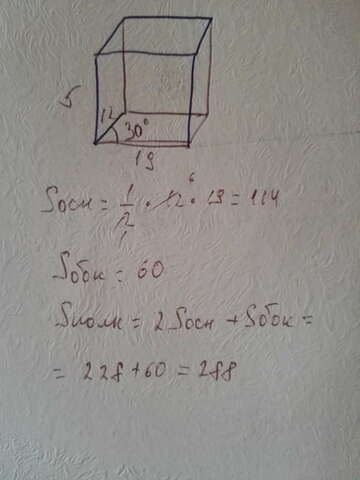 5
12
30°
19
Sосн = 1/2 · 12 6 · 19 = 114
1
Sбок = 60
Sполн = 2Sосн + Sбок =
= 228 + 60 = 288